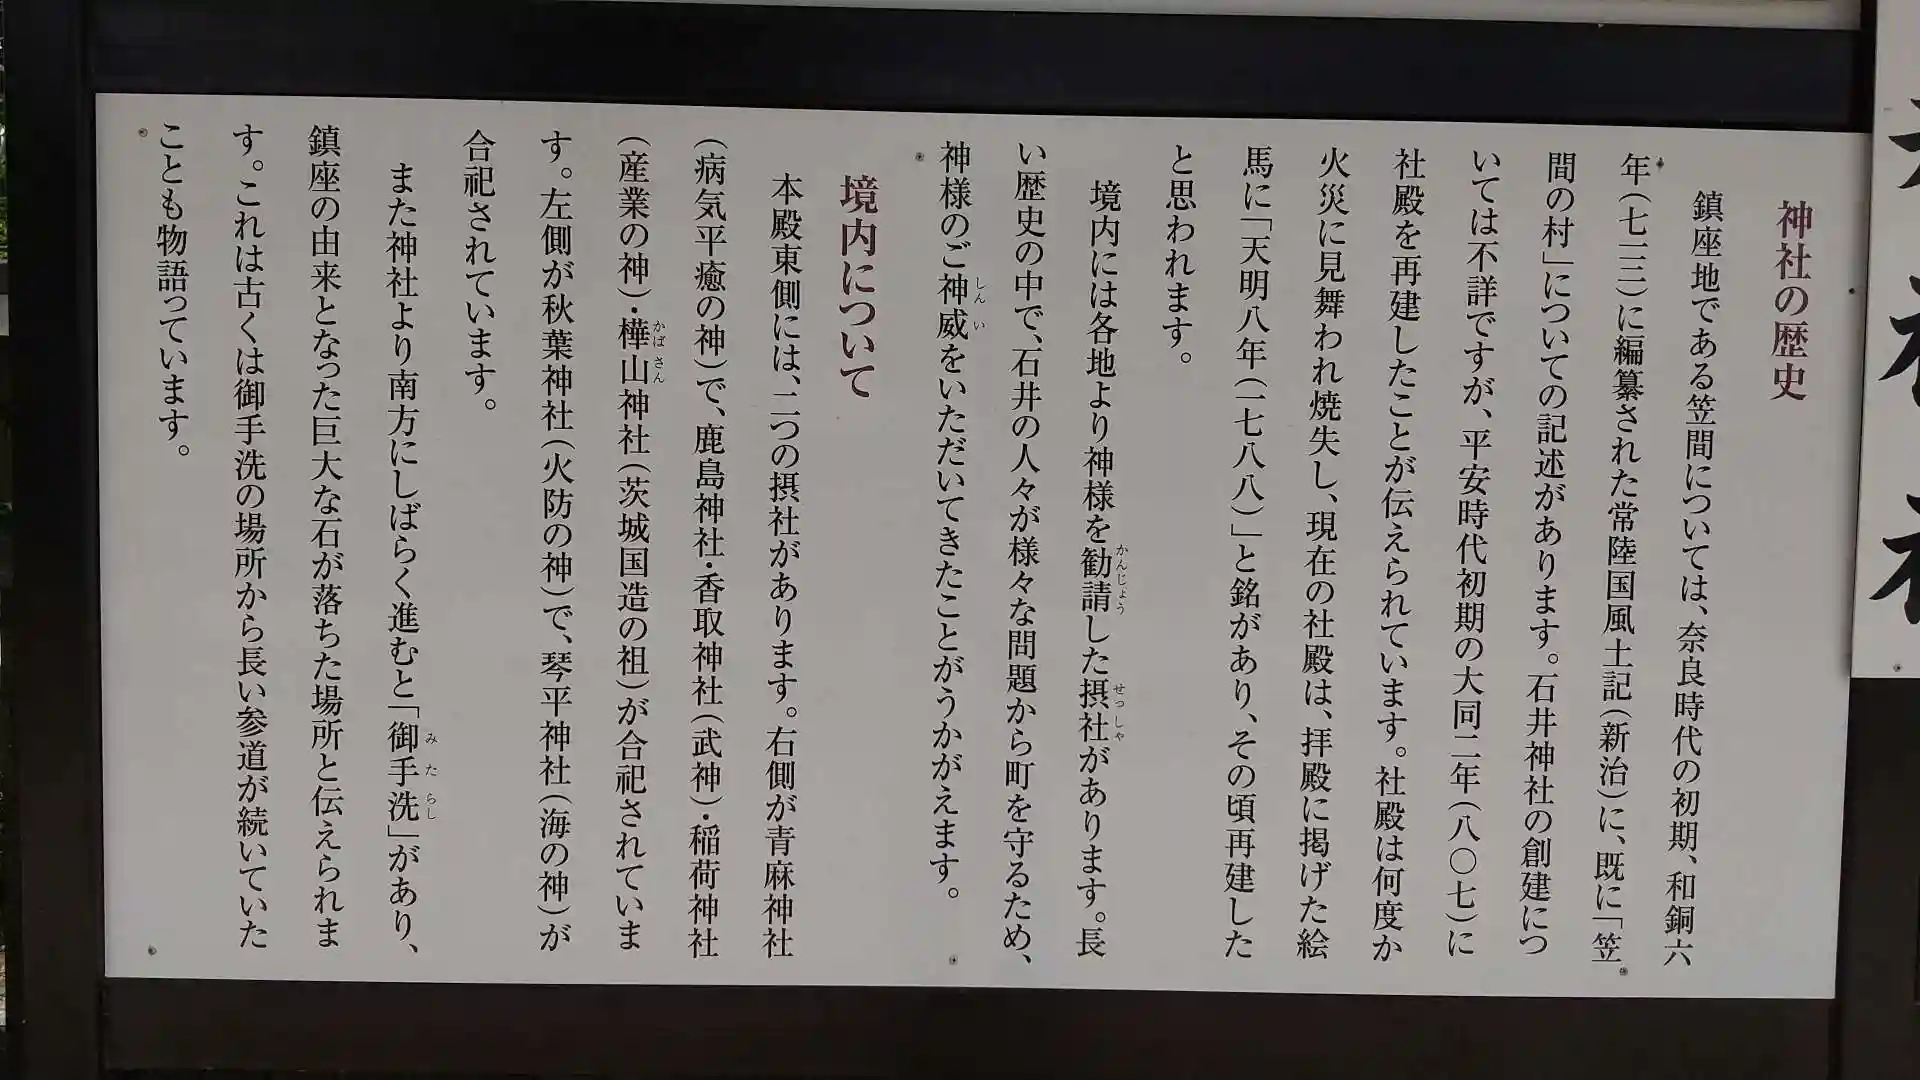 神社の歴史
鎮座地である笠間については、奈良時代の初期、和銅六
年(七一三)に編纂された常陸国風土記(新治)に、既に「笠
間の村」についての記述があります。石井神社の創建につ
いては不詳ですが、平安時代初期の大同二年(八〇七)に
社殿を再建したことが伝えられています。社殿は何度か
火災に見舞われ焼失し、現在の社殿は、拝殿に掲げた絵
馬に「天明八年(一七八八)」と銘があり、その頃再建した
と思われます。
境内には各地より神様を勧請した摂社があります。長
い歴史の中で、石井の人々が様々な問題から町を守るため、
神様のご神威をいただいてきたことがうかがえます。
境内について
本殿東側には、二つの摂社があります。右側が青麻神社
(病気平癒の神)で、鹿島神社・香取神社(武神)・稲荷神社
(産業の神)・樺山神社(茨城国造の祖)が合祀されていま
す。左側が秋葉神社(火防の神)で、琴平神社(海の神)が
合祀されています。
また神社より南方にしばらく進むと「御手洗」があり、
鎮座の由来となった巨大な石が落ちた場所と伝えられま
す。これは古くは御手洗の場所から長い参道が続いていた
ことも物語っています。
かんじょう
せっしゃ
しんい
かばさん
みたらし